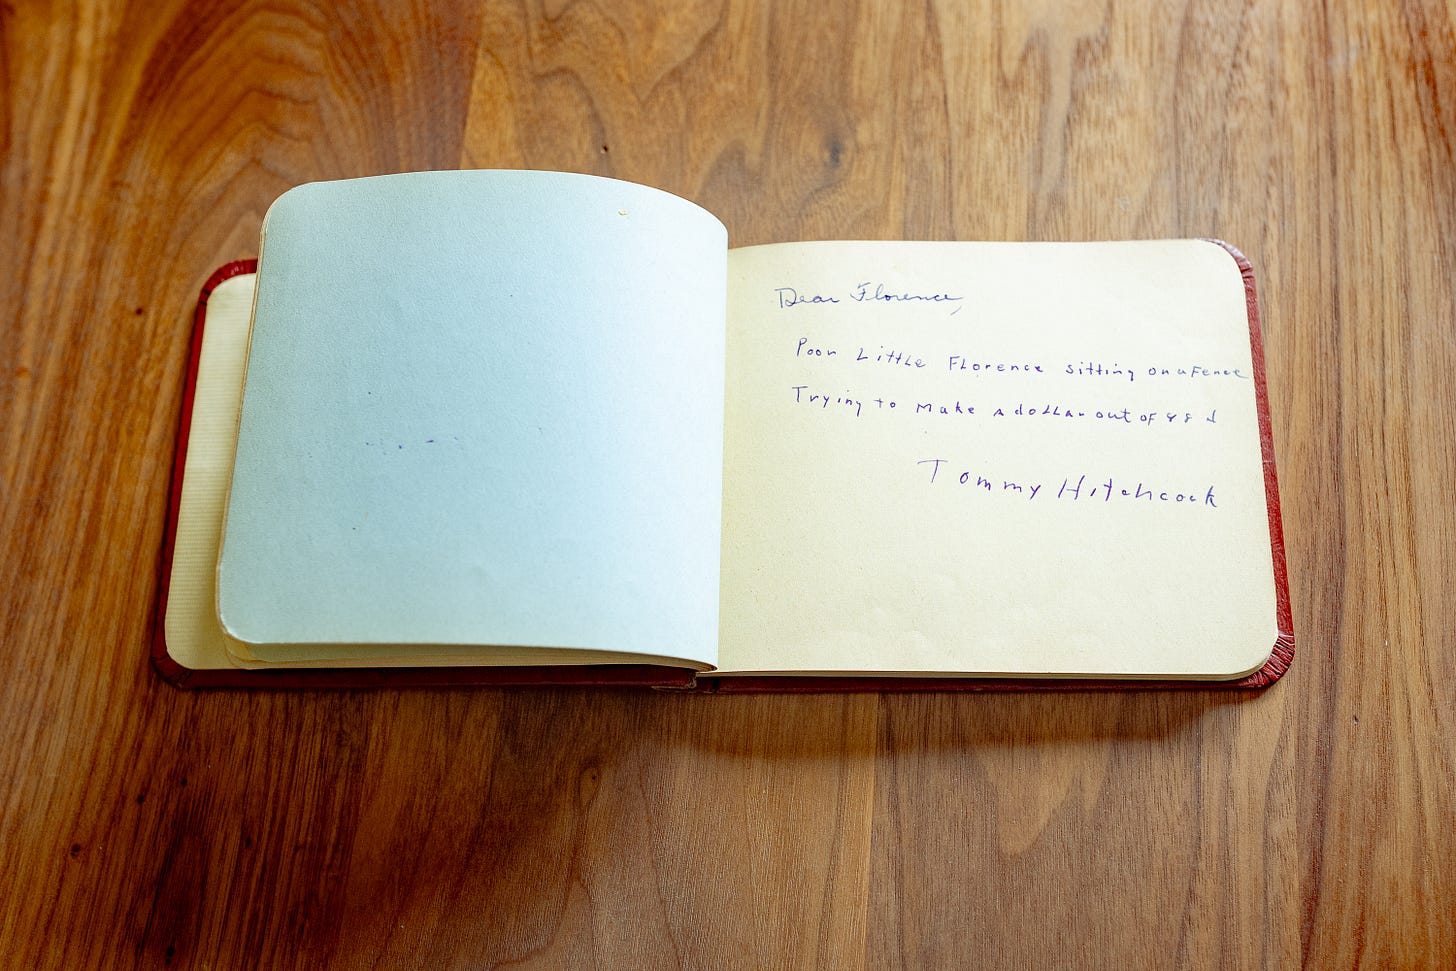 Dear Florence,
Poor Little Florence sitting on a Fence
Trying to make a dollar out of 88
Tommy Hitchcock